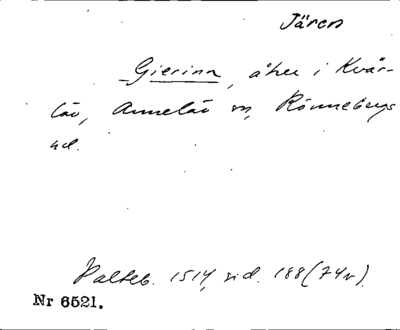 Jären
Gierina, åker i Kvär-
löv, Annelöv sn, Rönnebergs
hd.
Palteb. 1514, sid. 188 (74v).
Nr 6521.